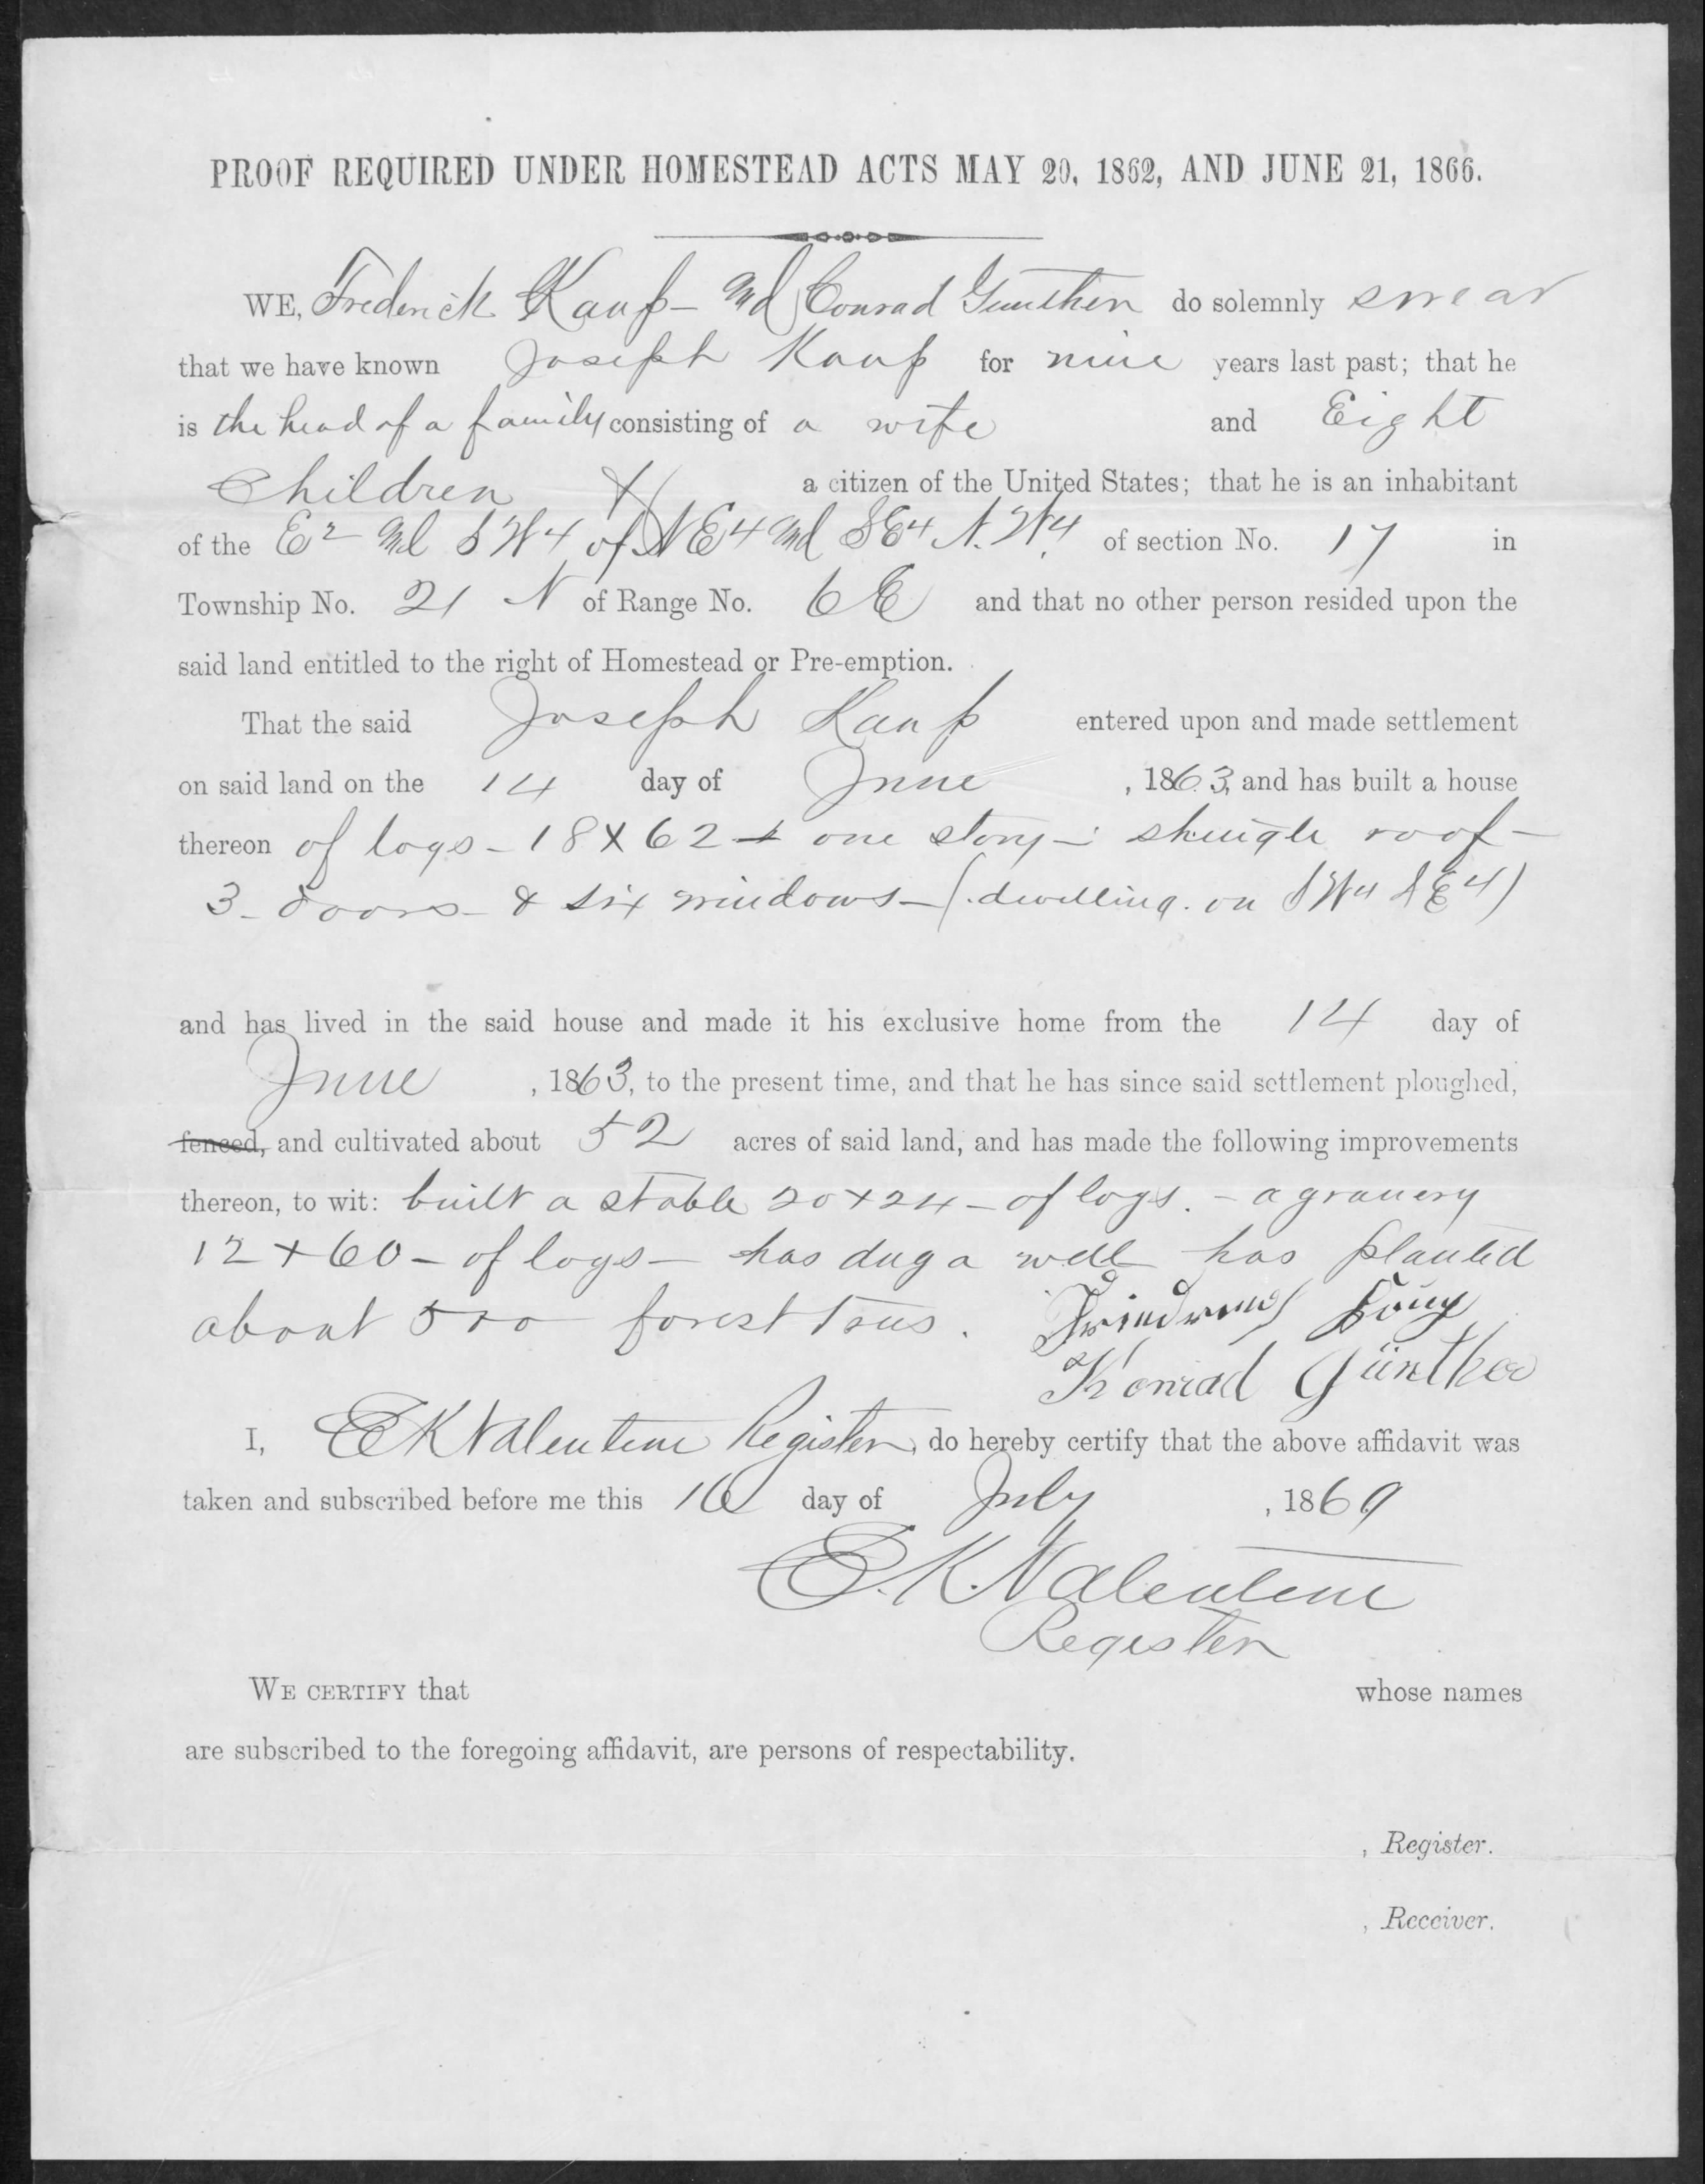 PROOF REQUIRED UNDER HOMESTEAD ACTS MAY 20, 1862, AND JUNE 21, 1866.
WE, Frederick Kaup - and Conrad Gunther do solemnly swear
that we have known Joseph Kaup for nine years last past; that he
is the head of a family consisting of a wife and Eight
Children & a citizen of the United States; that he is an inhabitant
of the E2 and SW4 of NE4 and SE4 N.W4 of section No. 17 in
Township No. 21 N of Range No. 6 E and that no other person resided upon the
said land entitled to the right of Homestead or Pre-emption.
That the said Joseph Kaup entered upon and made settlement
on said land on the 14 day of June , 1863, and has built a house
thereon of logs - 18 X 62 - one story - shingle roof -
3 - doors - & six windows - (dwelling on SW4 NE4)
and has lived in the said house and made it his exclusive home from the 14 day of
June , 1863, to the present time, and that he has since said settlement ploughed,
fenced, and cultivated about 52 acres of said land, and has made the following improvements
thereon, to wit: built a stable 20 + 24 - of logs. - a granery
12 + 60 - of logs - has dug a well has planted
about 500 forest trees.
Konrad Günther
I, E K Valentine Register, do hereby certify that the above affidavit was
taken and subscribed before me this 16 day of July , 1869
E. K. Valentine
Register
WE CERTIFY that whose names
are subscribed to the foregoing affidavit, are persons of respectability.
, Register.
, Receiver.